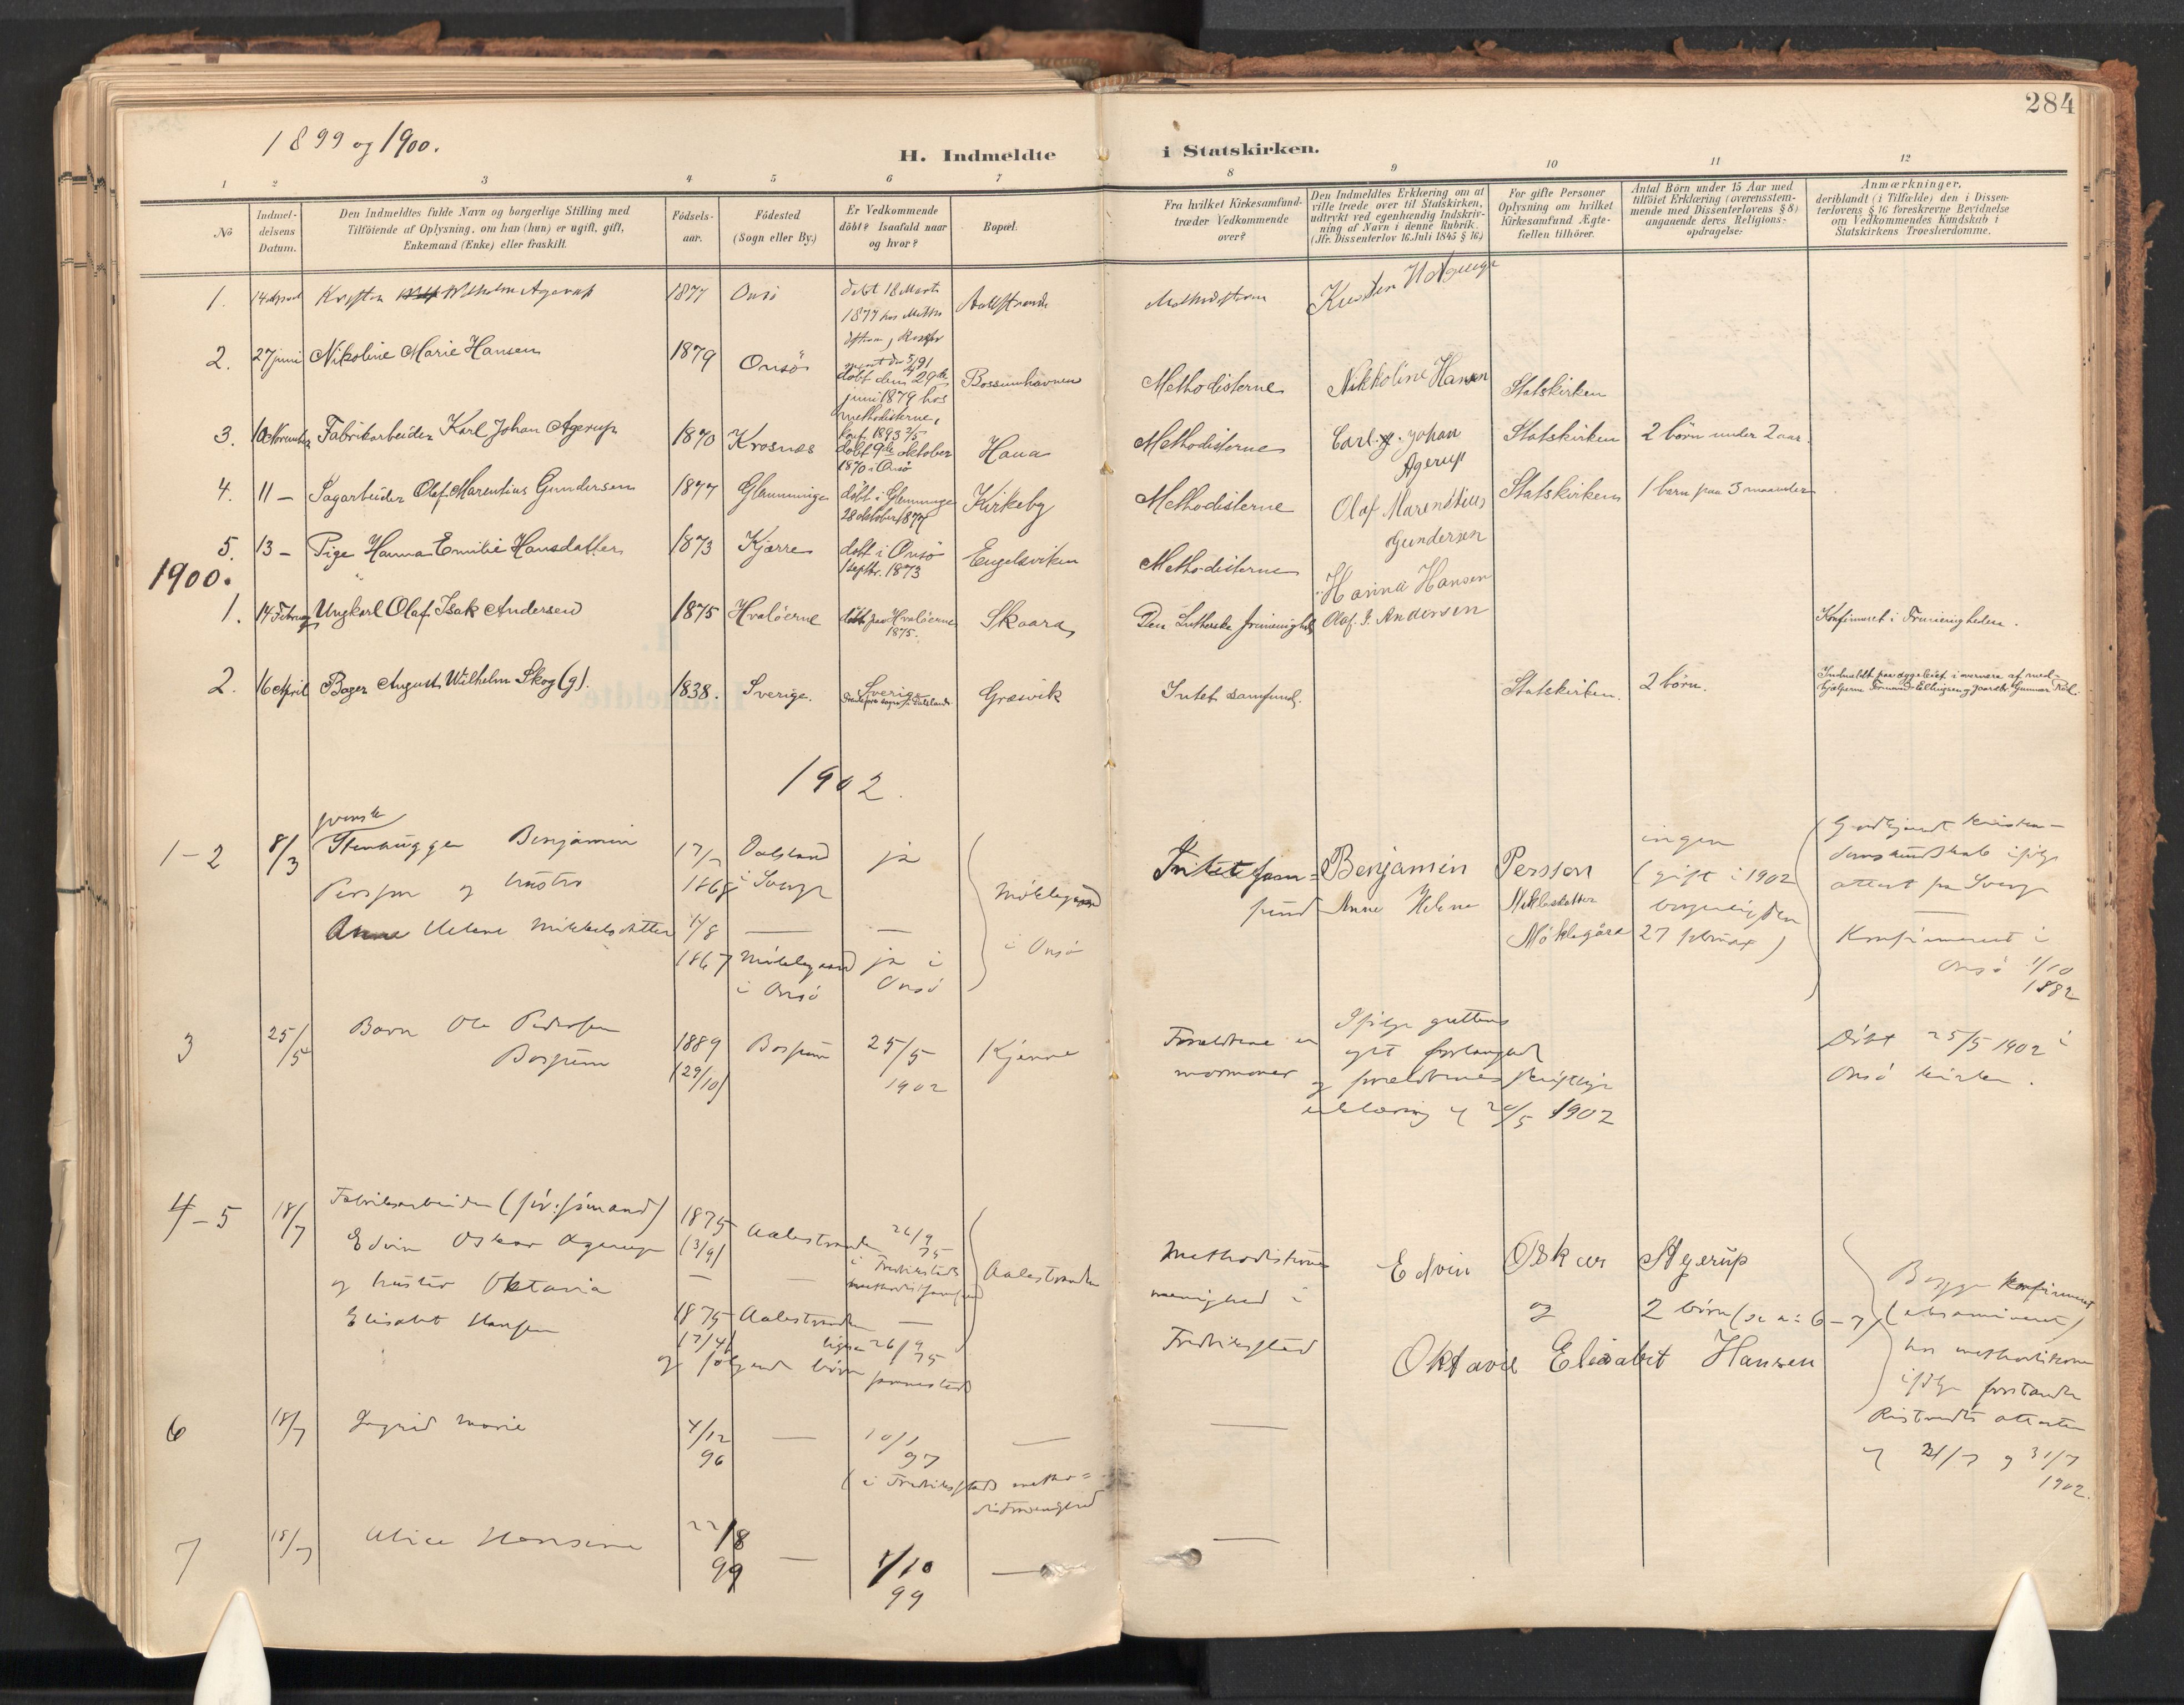 284
1899 og 1900.
H. Indmeldte i Statskirken.
1 2 3 4 5 6 7 8 9 10 11 12
No
Indmel-
delsens
Datum.
Den Indmeldtes fulde Navn og borgerlige Stilling med
Tilföiende af Oplysning, om han (hun) er ugift, gift,
Enkemand (Enke) eller fraskilt.
Födsels-
aar.
Födested
(Sogn eller By.)
Er Vedkommende
döbt? Isaafald naar
og hvor?
Bopæl.
Fra hvilket Kirkesamfund
træder Vedkommende
over?
Den Indmeldtes Erklæring om at
ville træde over til Statskirken,
udtrykt ved egenhændig Indskriv-
ning af Navn i denne Rubrik.
(Jfr. Dissenterlov 16. Juli 1845 § 16.)
For gifte Personer
Oplysning om hvilket
Kirkesamfund Ægte-
fællen tilhörer.
Antal Börn under 15 Aar med
tilföiet Erklæring (overensstem-
mende med Dissenterlovens § 8)
angaaende deres Religions-
opdragelse:
Anmærkninger,
deriblandt (i Tilfælde) den i Dissen-
terlovens § 16 foreskrevne Bevidnelse
om Vedkommendes Kundskab i
Statskirkens Troeslærdomme.
1. 14 April Kristen Wilhelm Agerup 1877 Onsö
döbt 18 Marts
1877 hos Metho
disterne,
Methodisterne
2. 27 juni Nikoline Marie Hansen 1879 Onsö
döbt den 29de
juni 1879 hos
methodisterne,
konf. 1893
Bossumhavnen Methodisterne Nikkoline Hansen Statskirken
3. 10 November Fabrikarbeider Karl Johan Agerup 1870 Krosnæs
döbt 9de oktober
1870 i Onsö
Haua Methodisterne Carl. Johan
Agerup
Statskirken 2 börn under 2 aar.
4. 11 — Sagarbeider Olaf Marentius Gundersen 1877 Glemminge
döbt i Glemminge
28 oktober 1877
Kirkeby Methodisterne Olaf Marenstius
Gundersen
Statskirken 1 barn paa 3 maaneder
5. 13 — Pige Hanna Emilie Hansdatter 1873 Kjærre
döbt i Onsö
1 septbr. 1873
Engelsviken Methodisterne Hanna Hansen
1900.
1. 14 Februar Ungkarl Olaf Isak Andersen 1875 Hvalöerne
döbt paa Hvalöerne
1875.
Skaara Den Lutherske frimenighed Olaf. I. Andersen Konfirmeret i Frimenigheden.
2. 16 April Bager August Wilhelm Skog (g). 1838. Sverige. Sverige
Græsvik Intet samfund. Statskirken. 2 börn.
Indmeldt paa sygeleiet i overvære af med-
1902.
1-2 8/3 svensk
Stenhugger Benjamin
Persson og hustru
Anne Helene Mikkelsdatter
Dalsland
i Sverge
ja
1867 Möklegaard
i Onsö
ja i
Onsö
Möklegaard
i Onsö
Intet sam=
fund
Benjamin Persson
Anne Helene Mikkelsdatter
Möklegård
ingen
(gift i 1902
borgerlig den
27 februar)
Godkjendt kristen-
domskundskab ifölge
attest fra Sverge
Konfirmeret i
Onsö 1/10
1882
3 25/5 Barn Ole Pedersen
Bossum
1889
(29/10)
Bossum
25/5
1902
Kjenne
Forældrene er
mormoner
Ifölge guttens
eget forlangend
og forældrenes skriftlige
erklæring af 20/5 1902
Döbt 25/5 1902 i
Onsö kirken.
4-5 18/7 Fabriksarbeider
Edvin Oskar Agerup
og hustru Oktavia
Elisabet Hansen
1875
(3/9)
Aalestranden
26/9
75
i Fredrikstads
methodistsamfund
Aalestranden
1875
17/4
Aalestranden
ligesaa 26/9
75
og fölgende börn
Methodisternes
menighed i
Fredriksstad
Edvin Oskar Agerup
og
Oktavie Elisabet Hansen
2 börn (se n: 6-7)
Begge konfirmeret
hos methodisterne
ifölge forstander
attester
af 21/7 og 31/7
1902.
6 18/7 Ingrid Marie
4/12
96
10/1
97
(i Fredriksstads metho=
distmenighed
7 18/7 Alice Hansine
22/8
99
1/10
99